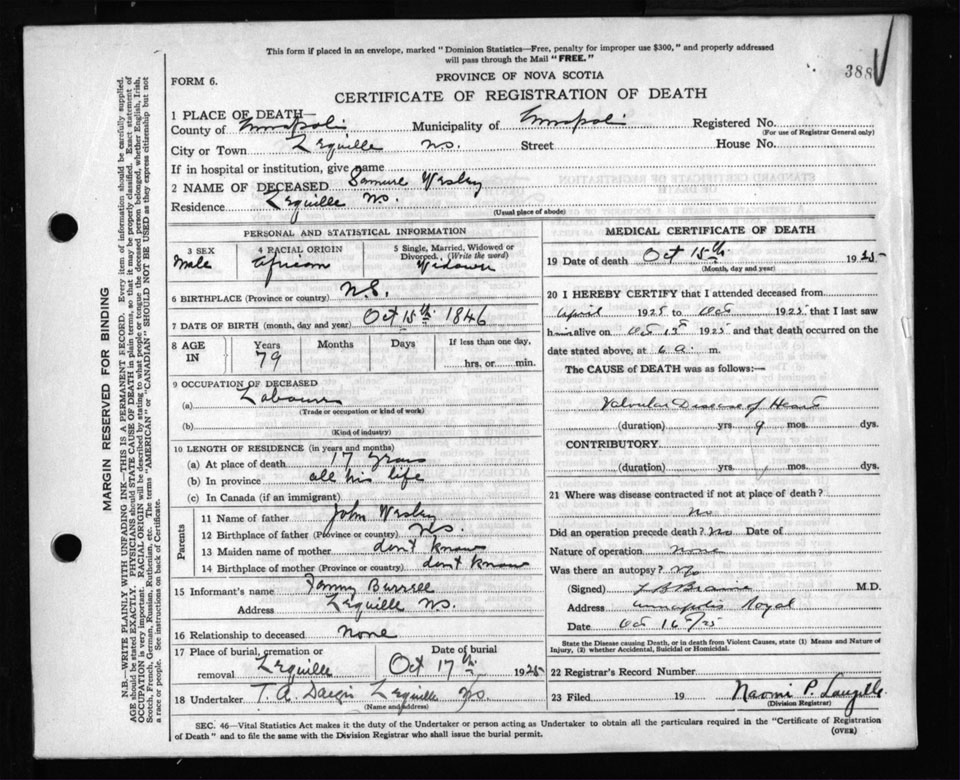 This form if placed in an envelope, marked "Dominion Statistics—Free, penalty for improper use $300," and properly addressed
will pass through the Mail "FREE."
388
FORM 6.
PROVINCE OF NOVA SCOTIA
CERTIFICATE OF REGISTRATION OF DEATH
1 PLACE OF DEATH—
County of Annapolis Municipality of Annapolis Registered No.
(For use of Registrar General only)
City or Town Lequille N.S. Street House No.
If in hospital or institution, give name
2 NAME OF DECEASED Samuel Wesley
Residence Lequille N.S.
(Usual place of abode)
PERSONAL AND STATISTICAL INFORMATION
3 SEX 4 RACIAL ORIGIN 5 Single, Married, Widowed or
Divorced (Write the word)
Male African Widower
6 BIRTHPLACE (Province or country) N.S.
7 DATE OF BIRTH (month, day and year) Oct 15th 1846
8 AGE IN Years Months Days If less than one day,
79 hrs. or min.
9 OCCUPATION OF DECEASED
(a) Labourer
(Trade or occupation or kind of work)
(b)
(Kind of industry)
10 LENGTH OF RESIDENCE (in years and months)
(a) At place of death 17 years
(b) In province all his life
(c) In Canada (if an immigrant)
Parents
11 Name of father John Wesley
12 Birthplace of father (Province or country) N.S.
13 Maiden name of mother don't know
14 Birthplace of mother (Province or country) don't know
15 Informant's name Burrell
Address Lequille N.S.
16 Relationship to deceased none
17 Place of burial, cremation or Date of burial
removal Lequille Oct 17th 1925
18 Undertaker T. A. Lequille N.S.
(Name and address)
MEDICAL CERTIFICATE OF DEATH
19 Date of death Oct 15th 1925
(Month, day and year)
20 I HEREBY CERTIFY that I attended deceased from
April 1925 to Oct 1925 that I last saw
him alive on Oct 13th 1925 and that death occurred on the
date stated above, at 6 a. m.
The CAUSE of DEATH was as follows:—
Valvular Disease of Heart
(duration) yrs. 9 mos. dys.
CONTRIBUTORY
(duration) yrs. mos. dys.
21 Where was disease contracted if not at place of death?
No
Did an operation precede death? No Date of
Nature of operation None
Was there an autopsy? No
(Signed) L B Braine M.D.
Address Annapolis Royal
Date Oct 16th/25
State the Disease causing Death, or in death from Violent Causes, state (1) Means and Nature of
Injury, (2) whether Accidental, Suicidal or Homicidal.
22 Registrar's Record Number
23 Filed 19 Naomi P. Langille
(Division Registrar)
SEC. 46—Vital Statistics Act makes it the duty of the Undertaker or person acting as Undertaker to obtain all the particulars required in the "Certificate of Registration
of Death" and to file the same with the Division Registrar who shall issue the burial permit.
(OVER)
MARGIN RESERVED FOR BINDING
N.B.—WRITE PLAINLY WITH UNFADING INK—THIS IS A PERMANENT RECORD. Every item of information should be carefully supplied.
AGE should be stated EXACTLY. PHYSICIANS should STATE CAUSE OF DEATH in plain terms, so that it may be properly classified. Exact statement of
OCCUPATION is very important. RACIAL ORIGIN will be described by stating to what people or tongue the deceased person belonged, whether English, Irish,
Scotch, French, German, Russian, Ruthenian, etc. The terms "AMERICAN" or "CANADIAN" SHOULD NOT BE USED as they express citizenship but not
a race or people. See instructions on back of Certificate.